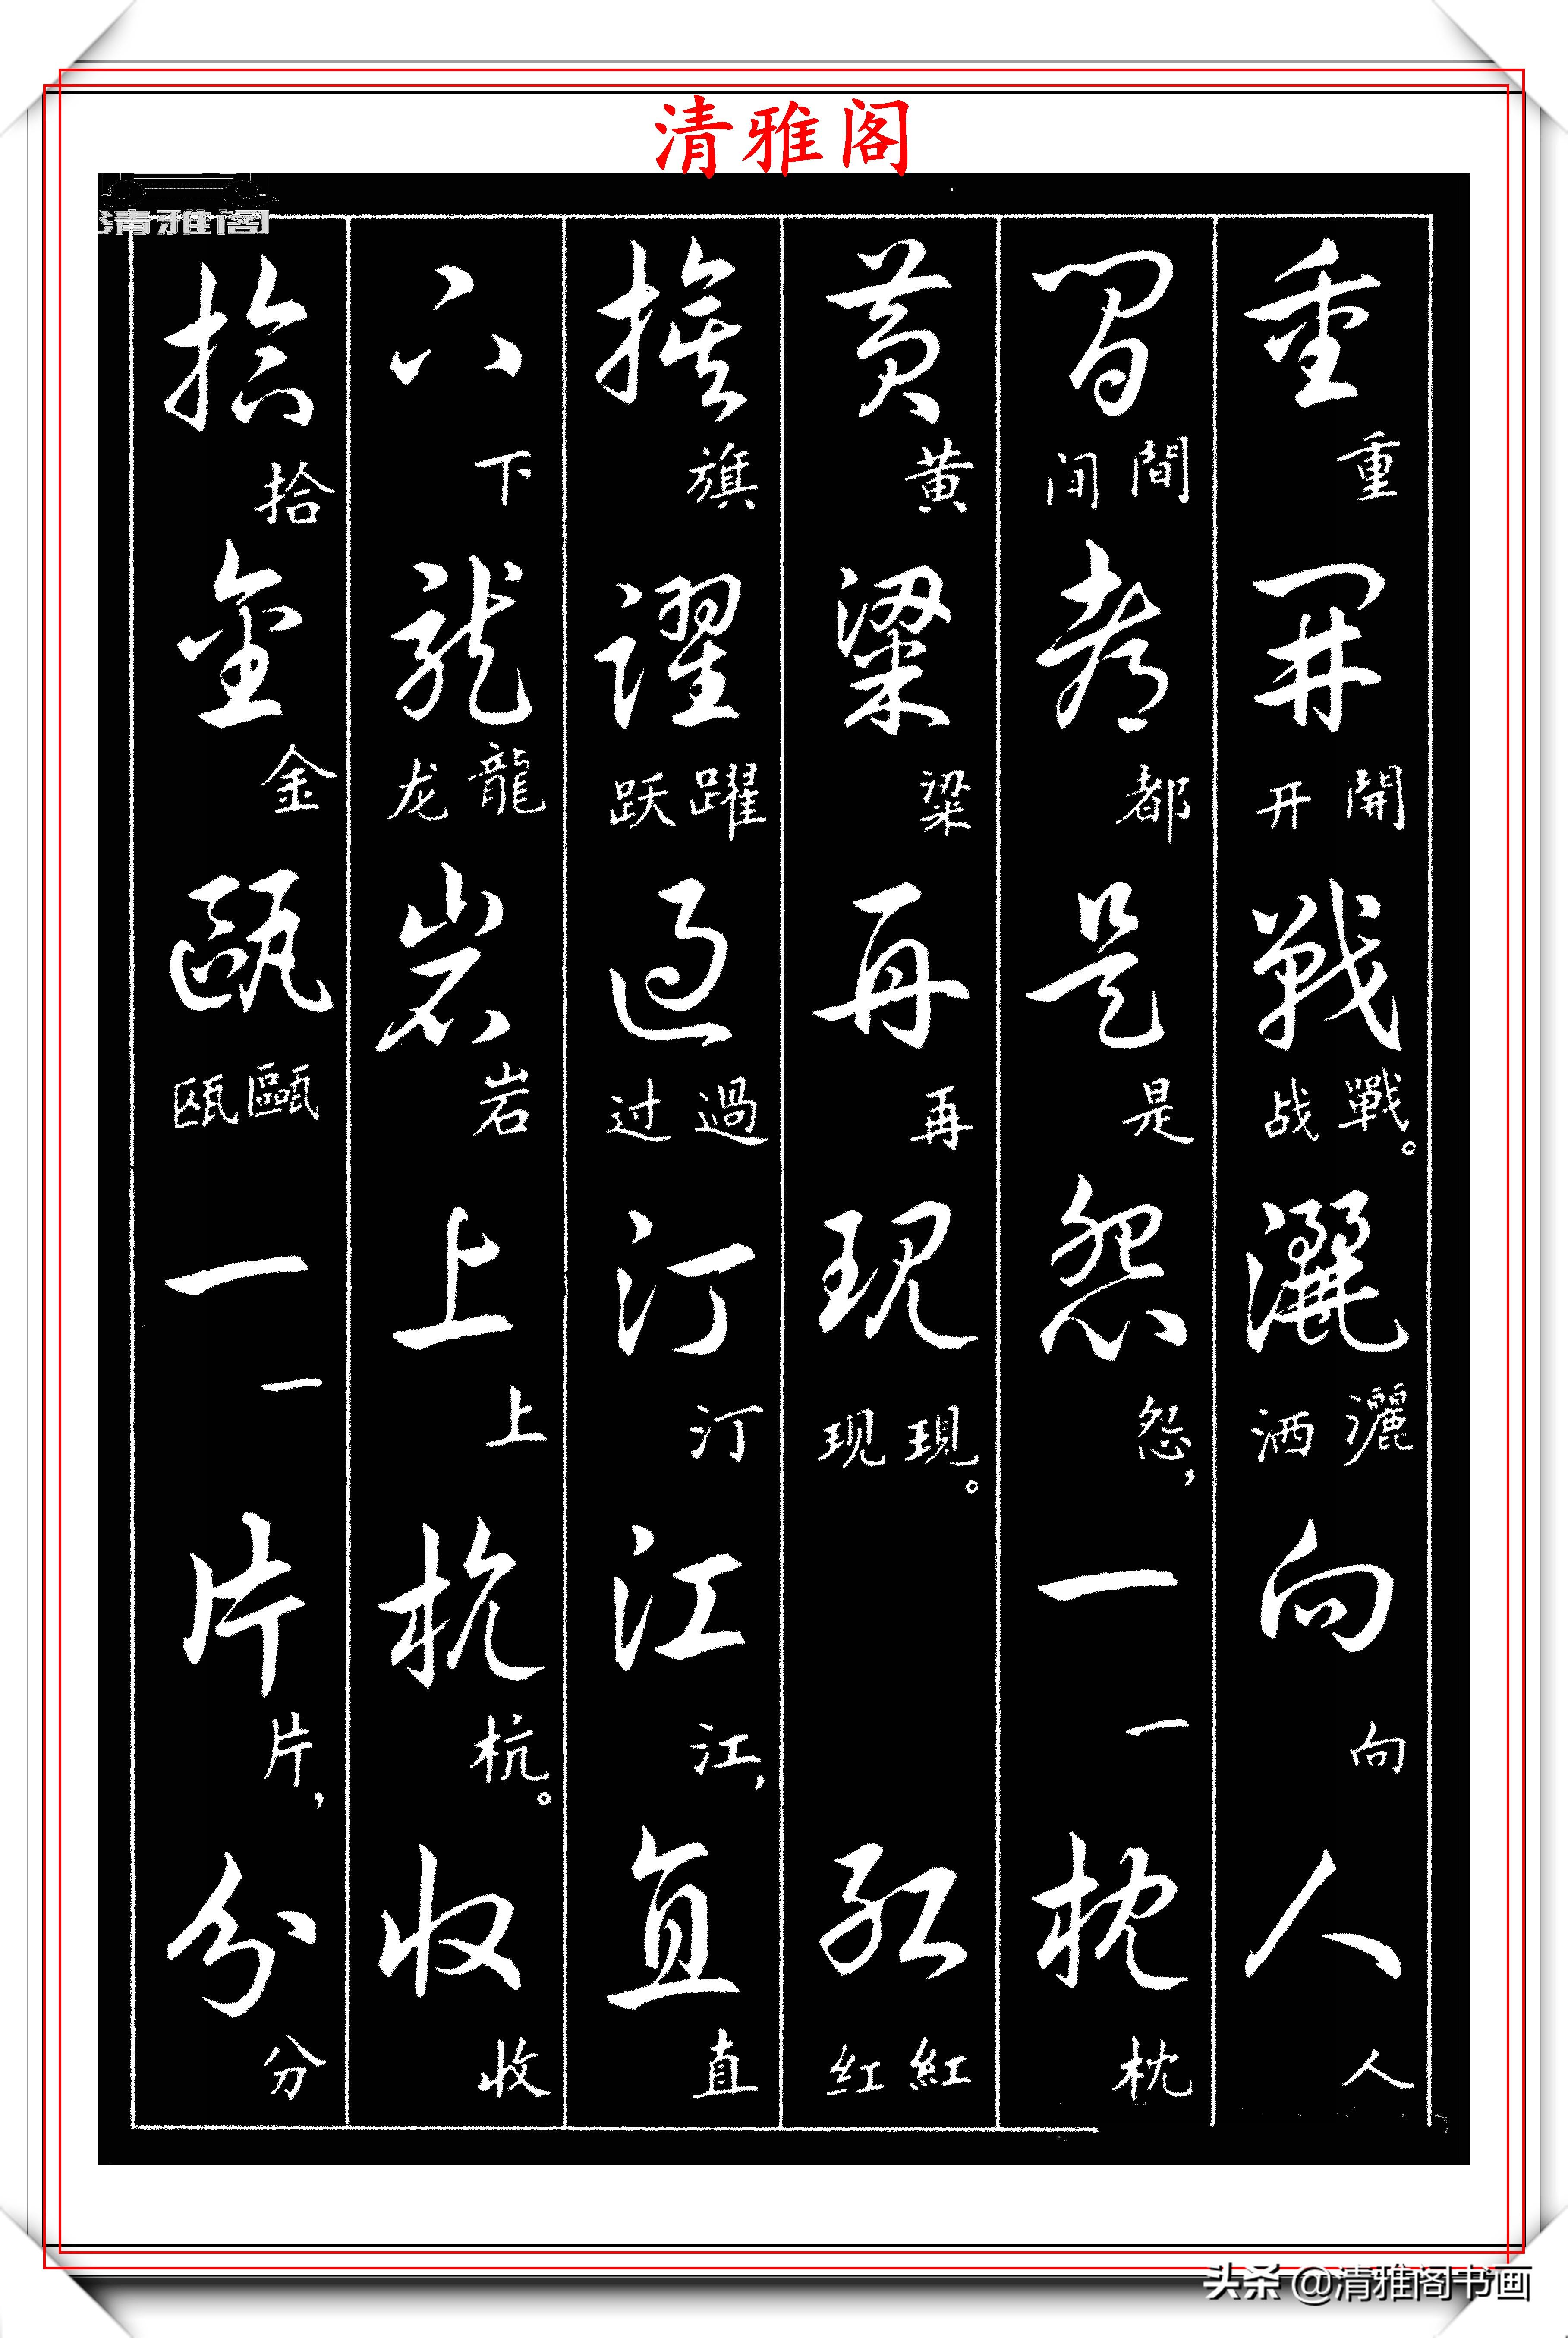 清雅阁
清雅阁
重重開開开戰戰战。灑灑洒向向人人
間間间都都是是怨怨,一一枕枕
黄黄粱粱再再現現现。紅紅红
旗旗躍躍跃過過过汀汀江江,直直
下下龍龍龙岩岩上上杭杭。收收
拾拾金金甌甌瓯一一片片,分分
头条 @清雅阁书画